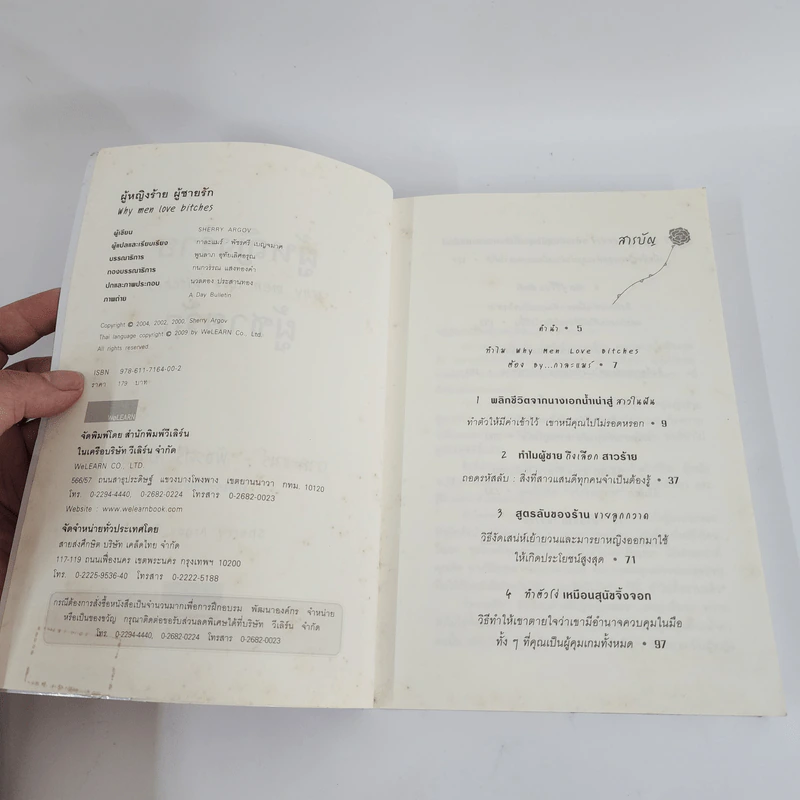 ผู้หญิงร้าย ผู้ชายรัก
Why men love bitches
ผู้เขียน SHERRY ARGOV
ผู้แปลและเรียบเรียง กาละแมร์ - พัชรศรี เบญจมาศ
บรรณาธิการ พูนลาภ อุทัยเลิศอรุณ
กองบรรณาธิการ กนกวรรณ แสงทองคำ
ปกและภาพประกอบ นวลตอง ประสานทอง
ภาพถ่าย A Day Bulletin
Copyright © 2004, 2002, 2000, Sherry Argov
Thai language copyright © 2009 by WeLEARN Co., Ltd.
All rights reserved.
ISBN 978-611-7164-00-2
ราคา 179 บาท
WeLEARN
จัดพิมพ์โดย สำนักพิมพ์วีเลิร์น
ในเครือบริษัท วีเลิร์น จำกัด
WeLEARN CO., LTD.
566/57 ถนนสาธุประดิษฐ์ แขวงบางโพงพาง เขตยานนาวา กทม. 10120
โทร. 0-2294-4440, 0-2682-0224 โทรสาร 0-2682-0023
Website : www.welearnbook.com
จัดจำหน่ายทั่วประเทศโดย
สายส่งศึกษิต บริษัท เคล็ดไทย จำกัด
117-119 ถนนเฟื่องนคร เขตพระนคร กรุงเทพฯ 10200
โทร. 0-2225-9536-40 โทรสาร 0-2222-5188
กรณีต้องการสั่งซื้อหนังสือเป็นจำนวนมากเพื่อการฝึกอบรม พัฒนาองค์กร จำหน่าย
หรือเป็นของขวัญ กรุณาติดต่อขอรับส่วนลดพิเศษได้ที่บริษัท วีเลิร์น จำกัด
โทร. 0-2294-4440, 0-2682-0224 โทรสาร 0-2682-0023
สารบัญ
คำนำ • 5
ทำไม Why Men Love Bitches
ต้อง by...กาละแมร์ • 7
1 พลิกชีวิตจากนางเอกน้ำเน่าสู่ สาวในฝัน
ทำตัวให้มีค่าเข้าไว้ เขาหนีคุณไปไม่รอดหรอก • 9
2 ทำไมผู้ชาย ถึงเลือก สาวร้าย
ถอดรหัสลับ : สิ่งที่สาวแสนดีทุกคนจำเป็นต้องรู้ • 37
3 สูตรลับของร้าน ขายลูกกวาด
วิธีงัดเสน่ห์เย้ายวนและมารยาหญิงออกมาใช้
ให้เกิดประโยชน์สูงสุด • 71
4 ทำตัวโง่ เหมือนสุนัขจิ้งจอก
วิธีทำให้เขาตายใจว่าเขามีอำนาจควบคุมในมือ
ทั้ง ๆ ที่คุณเป็นผู้คุมเกมทั้งหมด • 97